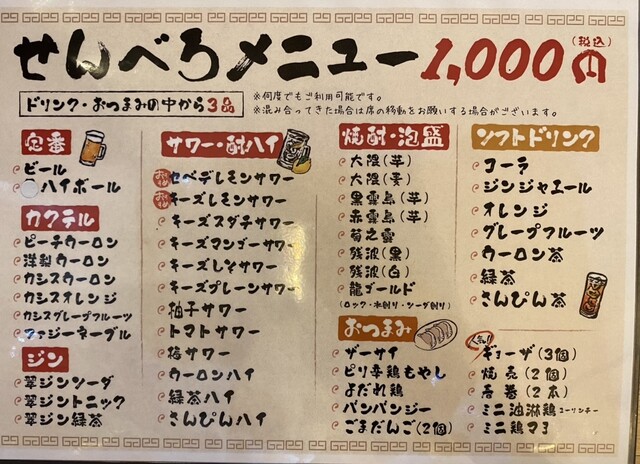 せんべろメニュー 1,000円 (税込)
ドリンク・おつまみの中から3品
※何度でもご利用可能です。
※混み合ってきた場合は席の移動をお願いする場合がございます。
定番
ビール
ハイボール
カクテル
ピーチウーロン
洋梨ウーロン
カシスウーロン
カシスオレンジ
カシスグレープフルーツ
ファジーネーブル
ジン
翠ジンソーダ
翠ジントニック
翠ジン緑茶
サワー・酎ハイ
セベデレモンサワー
キーズレモンサワー
キーズスダチサワー
キーズマンゴーサワー
キーズしそサワー
キーズプレーンサワー
柚子サワー
トマトサワー
梅サワー
ウーロンハイ
緑茶ハイ
さんぴんハイ
焼酎・泡盛
大隅(芋)
大隅(麦)
黒霧島(芋)
赤霧島(芋)
菊之露
残波(黒)
残波(白)
龍ゴールド
(ロック・水割り・ソーダ割り)
おつまみ
ザーサイ
ピリ辛鶏もやし
よだれ鶏
バンバンジー
ごまだんご(2個)
ソフトドリンク
コーラ
ジンジャエール
オレンジ
グレープフルーツ
ウーロン茶
緑茶
さんぴん茶
人気!!
ギョーザ(3個)
焼売(2個)
春巻(2本)
ミニ油淋鶏 ユーリンチー
ミニ鶏マヨ